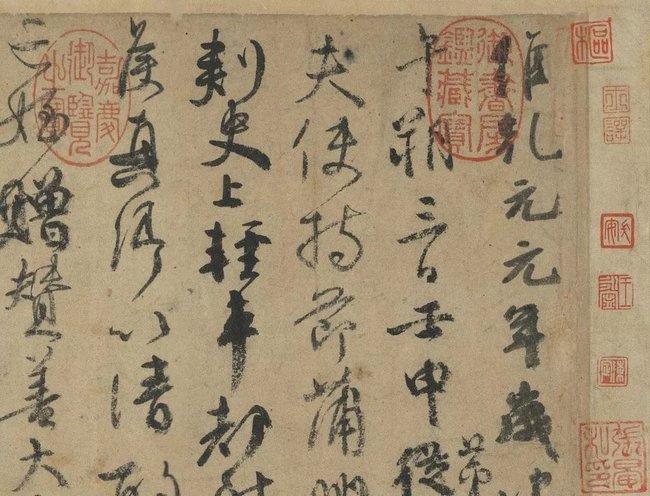 維乾元元年歲
午朔三日壬申從第
夫使持節蒲
刺史上輕車都尉
侯真卿以清酌
亡姪贈贊善大
御書房鑑藏寶
嘉慶御覽之寶
樞
張晏私印